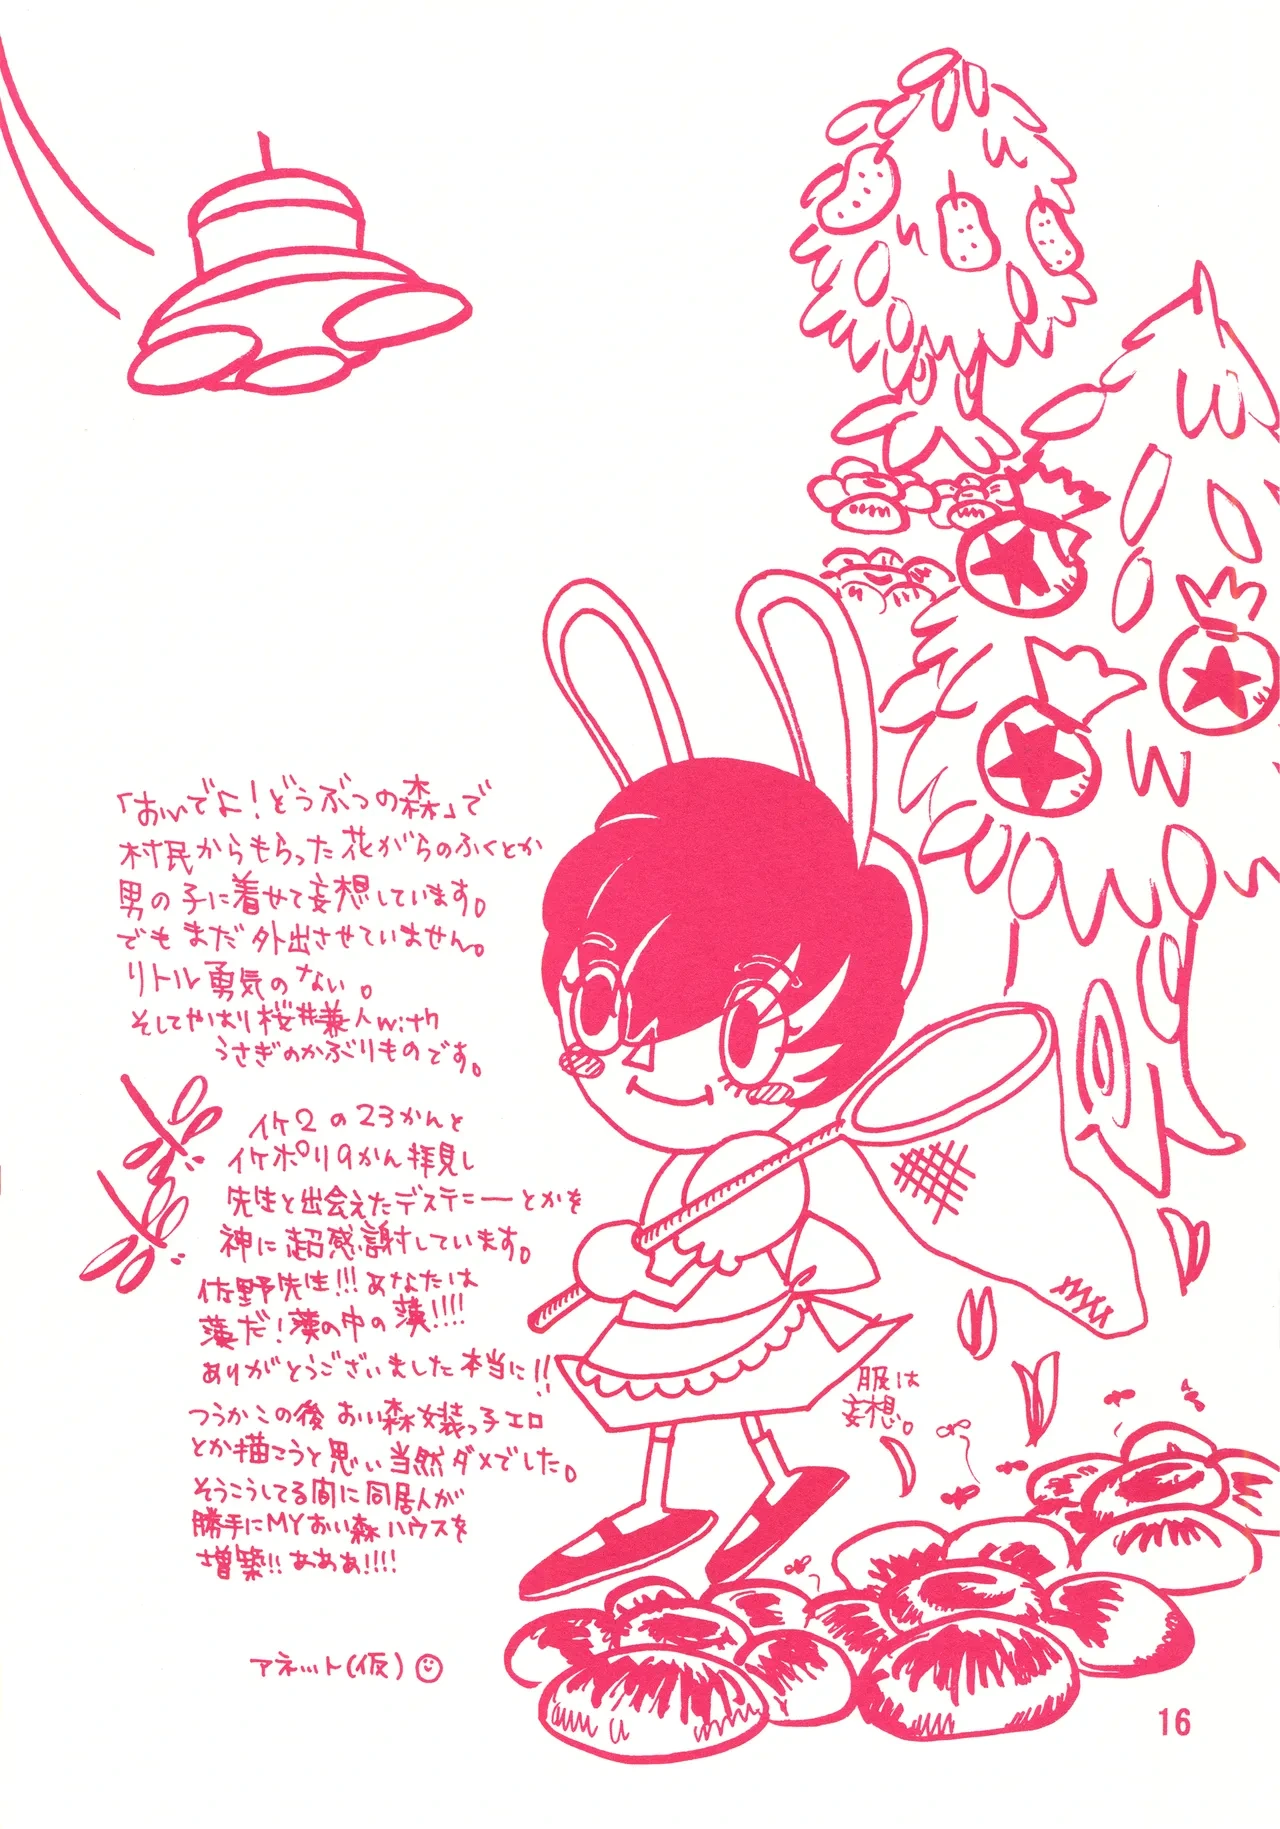 「おいでよ！どうぶつの森」で
村民からもらった花がらのふくとか
男の子に着せて妄想しています。
でもまだ外出させていません。
リトル勇気のない。
そしてやはり桜井兼人with
うさぎのかぶりものです。
イケ2の23かんと
イケポリ9かん拝見し
先生と出会えたデステニーとかを
神に超感謝しています。
佐野先生!!!あなたは
漢だ！漢の中の漢!!!!
ありがとうございました本当に!!
つうかこの後おい森女装っ子エロ
とか描こうと思い当然ダメでした。
そうこうしてる間に同居人が
勝手にMYおい森ハウスを
増築!!あああ!!!!
アネット(仮)
服は
妄想。
16